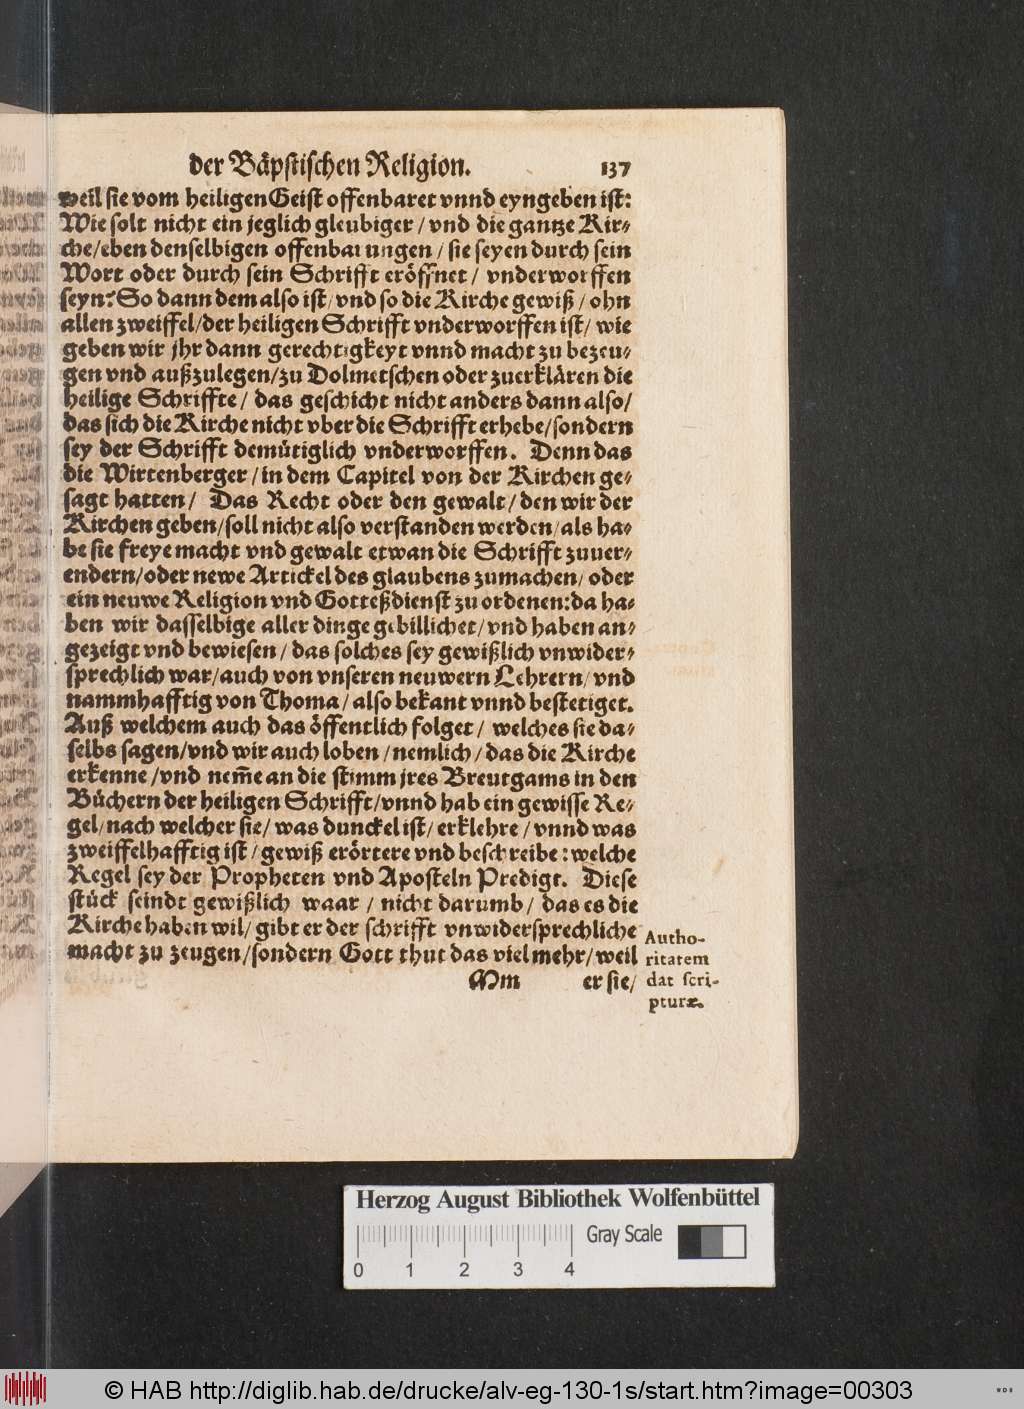 der Bäpstischen Religion. 137
weil sie vom heiligen Geist offenbaret vnnd eyngeben ist:
Wie solt nicht ein jeglich gleubiger / vnd die gantze Kir-
che/eben denselbigen offenbarungen / sie seyen durch sein
Wort oder durch sein Schrifft eröffnet / vnderworffen
seyn? So dann dem also ist/ vnd so die Kirche gewiß / ohn
allen zweiffel/der heiligen Schrifft vnderworffen ist/ wie
geben wir jhr dann gerechtigkeyt vnnd macht zu bezeu-
gen vnd außzulegen/zu Dolmetschen oder zuerklären die
heilige Schriffte / das geschicht nicht anders dann also/
das sich die Kirche nicht vber die Schrifft erhebe/sondern
sey der Schrifft demütiglich vnderworffen. Denn das
die Wirtenberger / in dem Capitel von der Kirchen ge-
sagt hatten / Das Recht oder den gewalt / den wir der
Kirchen geben/soll nicht also verstanden werden/als ha-
be sie freye macht vnd gewalt etwan die Schrifft zuuer-
endern/oder newe Artickel des glaubens zumachen/ oder
ein neuwe Religion vnd Gotteßdienst zu ordenen: da ha-
ben wir dasselbige aller dinge gebillichet/ vnd haben an-
gezeigt vnd bewiesen / das solches sey gewißlich vnwider-
sprechlich war/auch von vnseren neuwern Lehrern/ vnd
nammhafftig von Thoma / also bekant vnnd bestetiget.
Auß welchem auch das öffentlich folget / welches sie da-
selbs sagen/vnd wir auch loben / nemlich / das die Kirche
erkenne /vnd nem̄e an die stimm jres Breutgams in den
Büchern der heiligen Schrifft/vnnd hab ein gewisse Re-
gel/ nach welcher sie/ was dunckel ist/ erklehre / vnnd was
zweiffelhafftig ist / gewiß erörtere vnd beschreibe: welche
Regel sey der Propheten vnd Aposteln Predigt. Diese
stück seindt gewißlich waar / nicht darumb/ das es die
Kirche haben wil/ gibt er der schrifft vnwidersprechliche
macht zu zeugen/sondern Gott thut das viel mehr/ weil
Mm er sie/
Autho-
ritatem
dat scri-
pturæ.
Herzog August Bibliothek Wolfenbüttel
Gray Scale
0 1 2 3 4
© HAB http://diglib.hab.de/drucke/alv-eg-130-1s/start.htm?image=00303